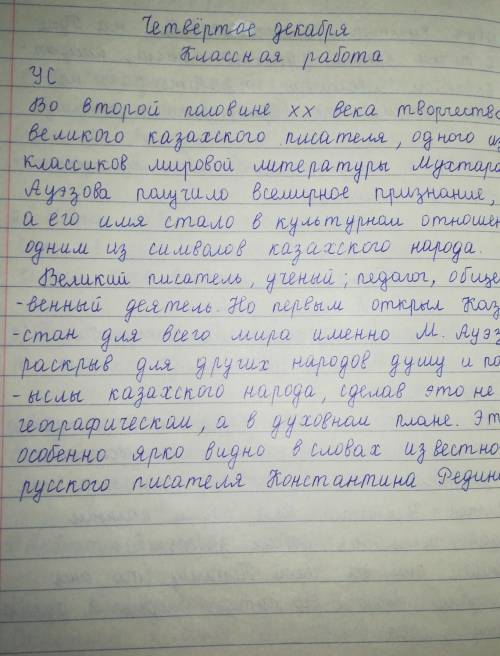 Четвёртое декабря
Классная работа
УС
Во второй половине XX века творчество
великого казахского писателя, одного из
классиков мировой литературы Мухтара
Ауэзова получило всемирное признание,
а его имя стало в культурном отношен
одним из символов казахского народа.
Великий писатель, учёный, педагог, общес
-венный деятель. Но первым открыл Каз
-стан для всего мира именно М. Ауэз
раскрыв для других народов душу и по
-ыслы казахского народа, сделав это не
географическом, а в духовном плане. Эт
особенно ярко видно в словах известно
русского писателя Константина Федина